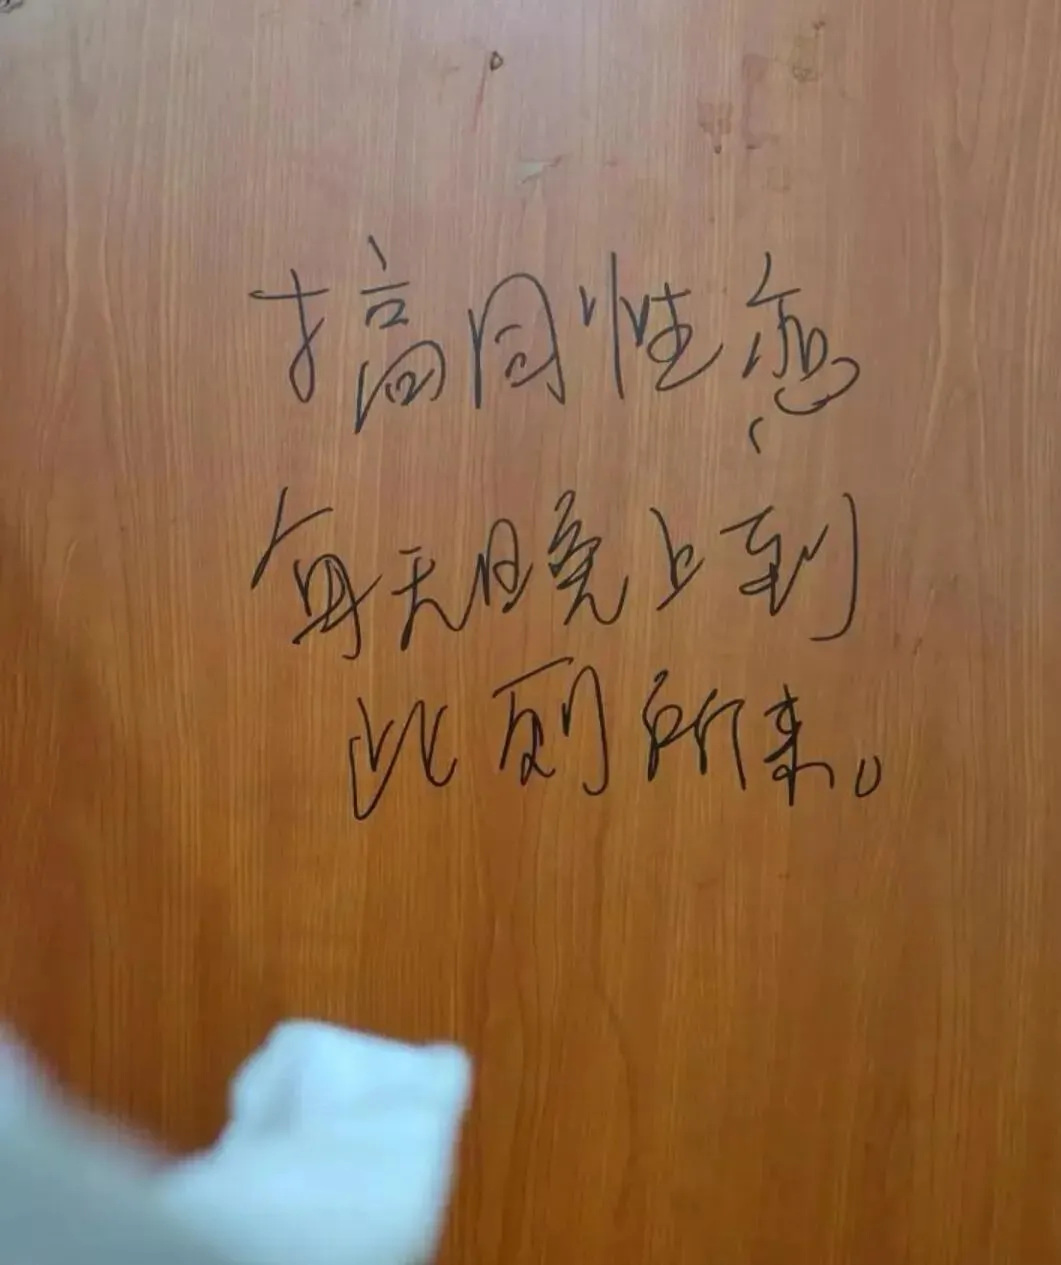 搞同性恋
每天晚上到
此厕所来。